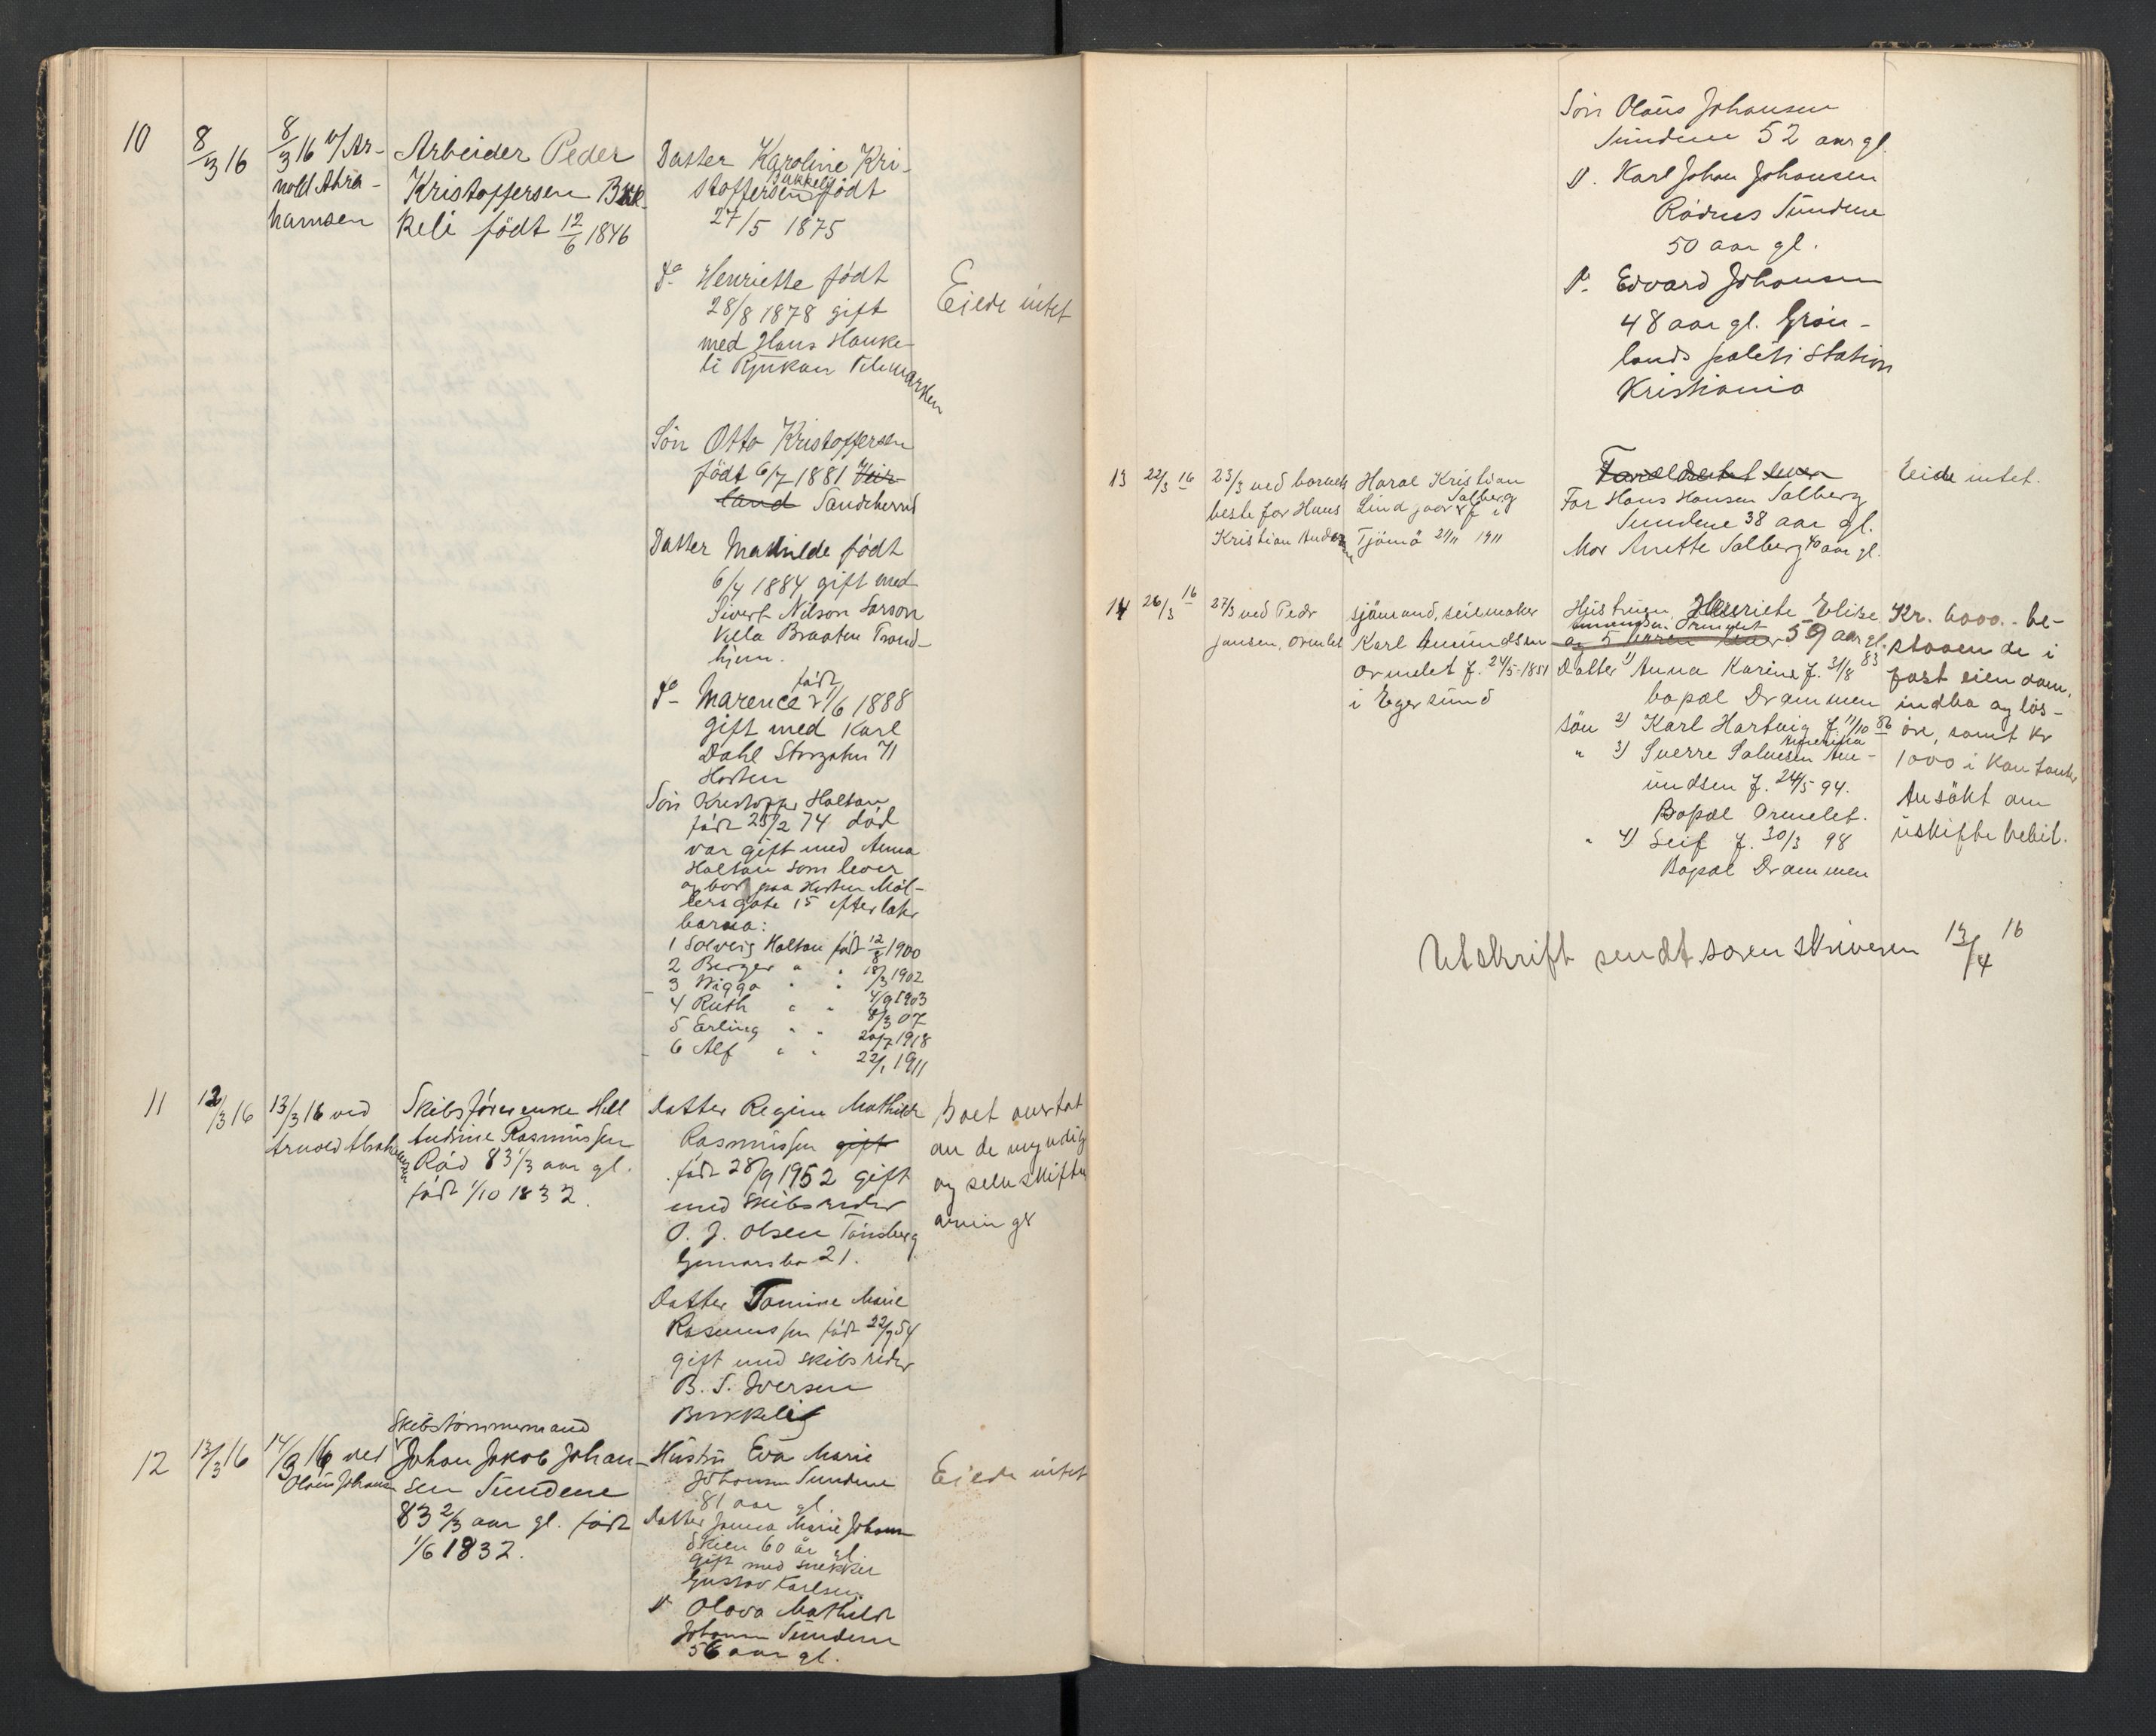 10
8/3 16
8/3 16 v/ Ar-
nold Abra-
hamsen
Arbeider Peder
Kristoffersen Buk-
keli født 12/6 1846
Datter Karoline Kri-
Bukkeli
stoffersen født
27/5 1875
do Henriette født
28/8 1878 gift
med Hans Hauke-
li Rjukan Telemarken
Eiede intet
Sön Otto Kristoffersen
født 6/7 1881
land Sandeherred
Datter Mathilde født
6/4 1884 gift med
Sivert Nilson Larson
Villa Braaten Trond-
hjem.
født
do Marence 21/6 1888
gift med Karl
Dahl Storgaten 71
Horten
Sön Kristoffer Holtan
født 25/2 74 död
var gift med Anna
Holtan som lever
og bor paa Horten Möl-
lers gate 15 efterlater
barna:
1 Solveig Holtan født 12/8 1900
2 Birger " " 18/3 1902
3 Wiggo " " 4/9 1903
4 Ruth " " 8/3 07
5 Erling " " 20/7 1918
6 Alf " " 22/1 1911
11
12/3 16
13/3 16 ved
Arnold Abrahamsen
Skibsförerenke Hell
Andrine Rasmussen
Röd 83 1/3 aar gl.
født 1/10 1832.
Datter Regine Mathilde
Rasmussen gift
født 28/9 1952 gift
med skibsreder
O. J. Olsen Tönsberg
Gunnarsbo 21.
Datter Tomine Marie
Rasmussen født 22/9 54
gift med skibsreder
B. S. Iversen
Bukkeli
Boet overtat
av de myndige
og selvskiftende
arvinger
12
13/3 16
14/3 16 ved
Olaus Johansen
Skibstömmermand
Johan Jakob Johan-
sen Sundene
83 2/3 aar gl. født
1/6 1832.
Hustru Eva Marie
Johansen Sundene
81 aar gl.
Datter Janna Marie Johansen
Skien 60 år gl
gift med snekker
Gustav Karlsen
do Olava Mathilde
Johansen Sundene
56 aar gl.
Eiede intet
Sön Olaus Johansen
Sundene 52 aar gl.
do. Karl Johan Johansen
Rödsæs Sundene
50 aar gl.
do. Edvard Johansen
48 aar gl. Grön-
lands politi station
Kristiania
13
22/3 16
23/3 ved barnets
beste far Hans
Kristian Andersen
Haral Kristian
Salberg
Lind f i
Tjömö 21/11 1911
Foreldrene lever
Far Hans Hansen Salberg
Sundene 38 aar gl.
Mor Anette Salberg 40 aar gl.
Eide intet.
14
26/3 16
27/3 ved Peder
Jansen, Ormelet
sjömand, seilmaker
Karl Amundsen
Ormelet f. 24/5-1851
i Egersund
Hustruen Henriete Elise
Amundsen Ormelet
og 5 barn lever 59 aar gl.
Datter 1) Anna Karine f. 31/8 83
bopæl Drammen
sön 2) Karl Hartvig f. 11/10 86
Amerika
" 3) Sverre Salvesen Am-
undsen f. 24/5 94.
Bopæl Ormelet.
" 4) Leif f. 30/3 98
Bopæl Drammen
Kr. 6000.- be-
staaende i
fast eiendom,
indbo og lös-
öre, samt kr
1000 i kontanter
Ansökt om
uskiftebevil.
Utskrift sendt sorenskriveren 13/4 16